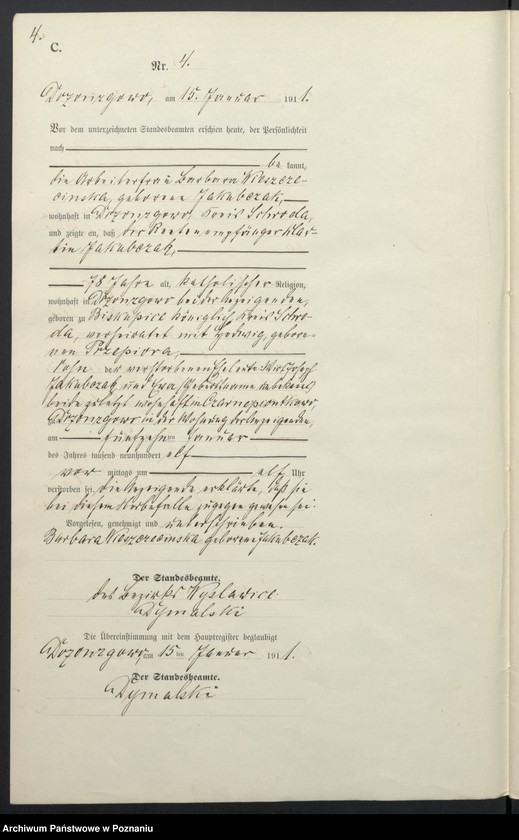 4.
C.
Nr. 4.
am 15. Januar 1911.
Vor dem unterzeichneten Standesbeamten erschien heute, der Persönlichkeit
nach
bekannt,
die Arbeiterfrau Barbara
geborene Jakubczak,
wohnhaft in Kreis Schroda,
und zeigte an, daß der Rentenempfänger Mar-
tin Jakubczak,
78 Jahre alt, katholischer Religion,
wohnhaft in bei der Anzeigenden,
geboren zu Biskupice Königlich Kreis Schro-
da, verheiratet mit Hedwig, gebore-
nen Przepiora,
Sohn der verstorbenen Eheleute Wirt Joseph
Jakubczak und Eva, Geburtsname unbekannt,
beide zuletzt wohnhaft in
in der Wohnung der Anzeigenden,
am fünfzehnten Januar
des Jahres tausend neunhundert elf
vor mittags um elf Uhr
verstorben sei. Die Anzeigende erklärte, daß sie
bei diesem Sterbefalle zugegen gewesen sei.
Vorgelesen, genehmigt und unterschrieben.
Barbara geborene Jakubczak.
Der Standesbeamte.
des Bezirks
Dymalski
Die Übereinstimmung mit dem Hauptregister beglaubigt
am 15ten Januar 1911.
Der Standesbeamte.
Dymalski
Archiwum Państwowe w Poznaniu